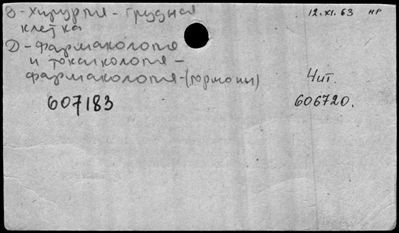 В - Хирургия - грудная 12.XI.63 нр
клетка
D - Фармакология
и токсикология -
фармакология - (гормоны) Чит.
607183 606720.